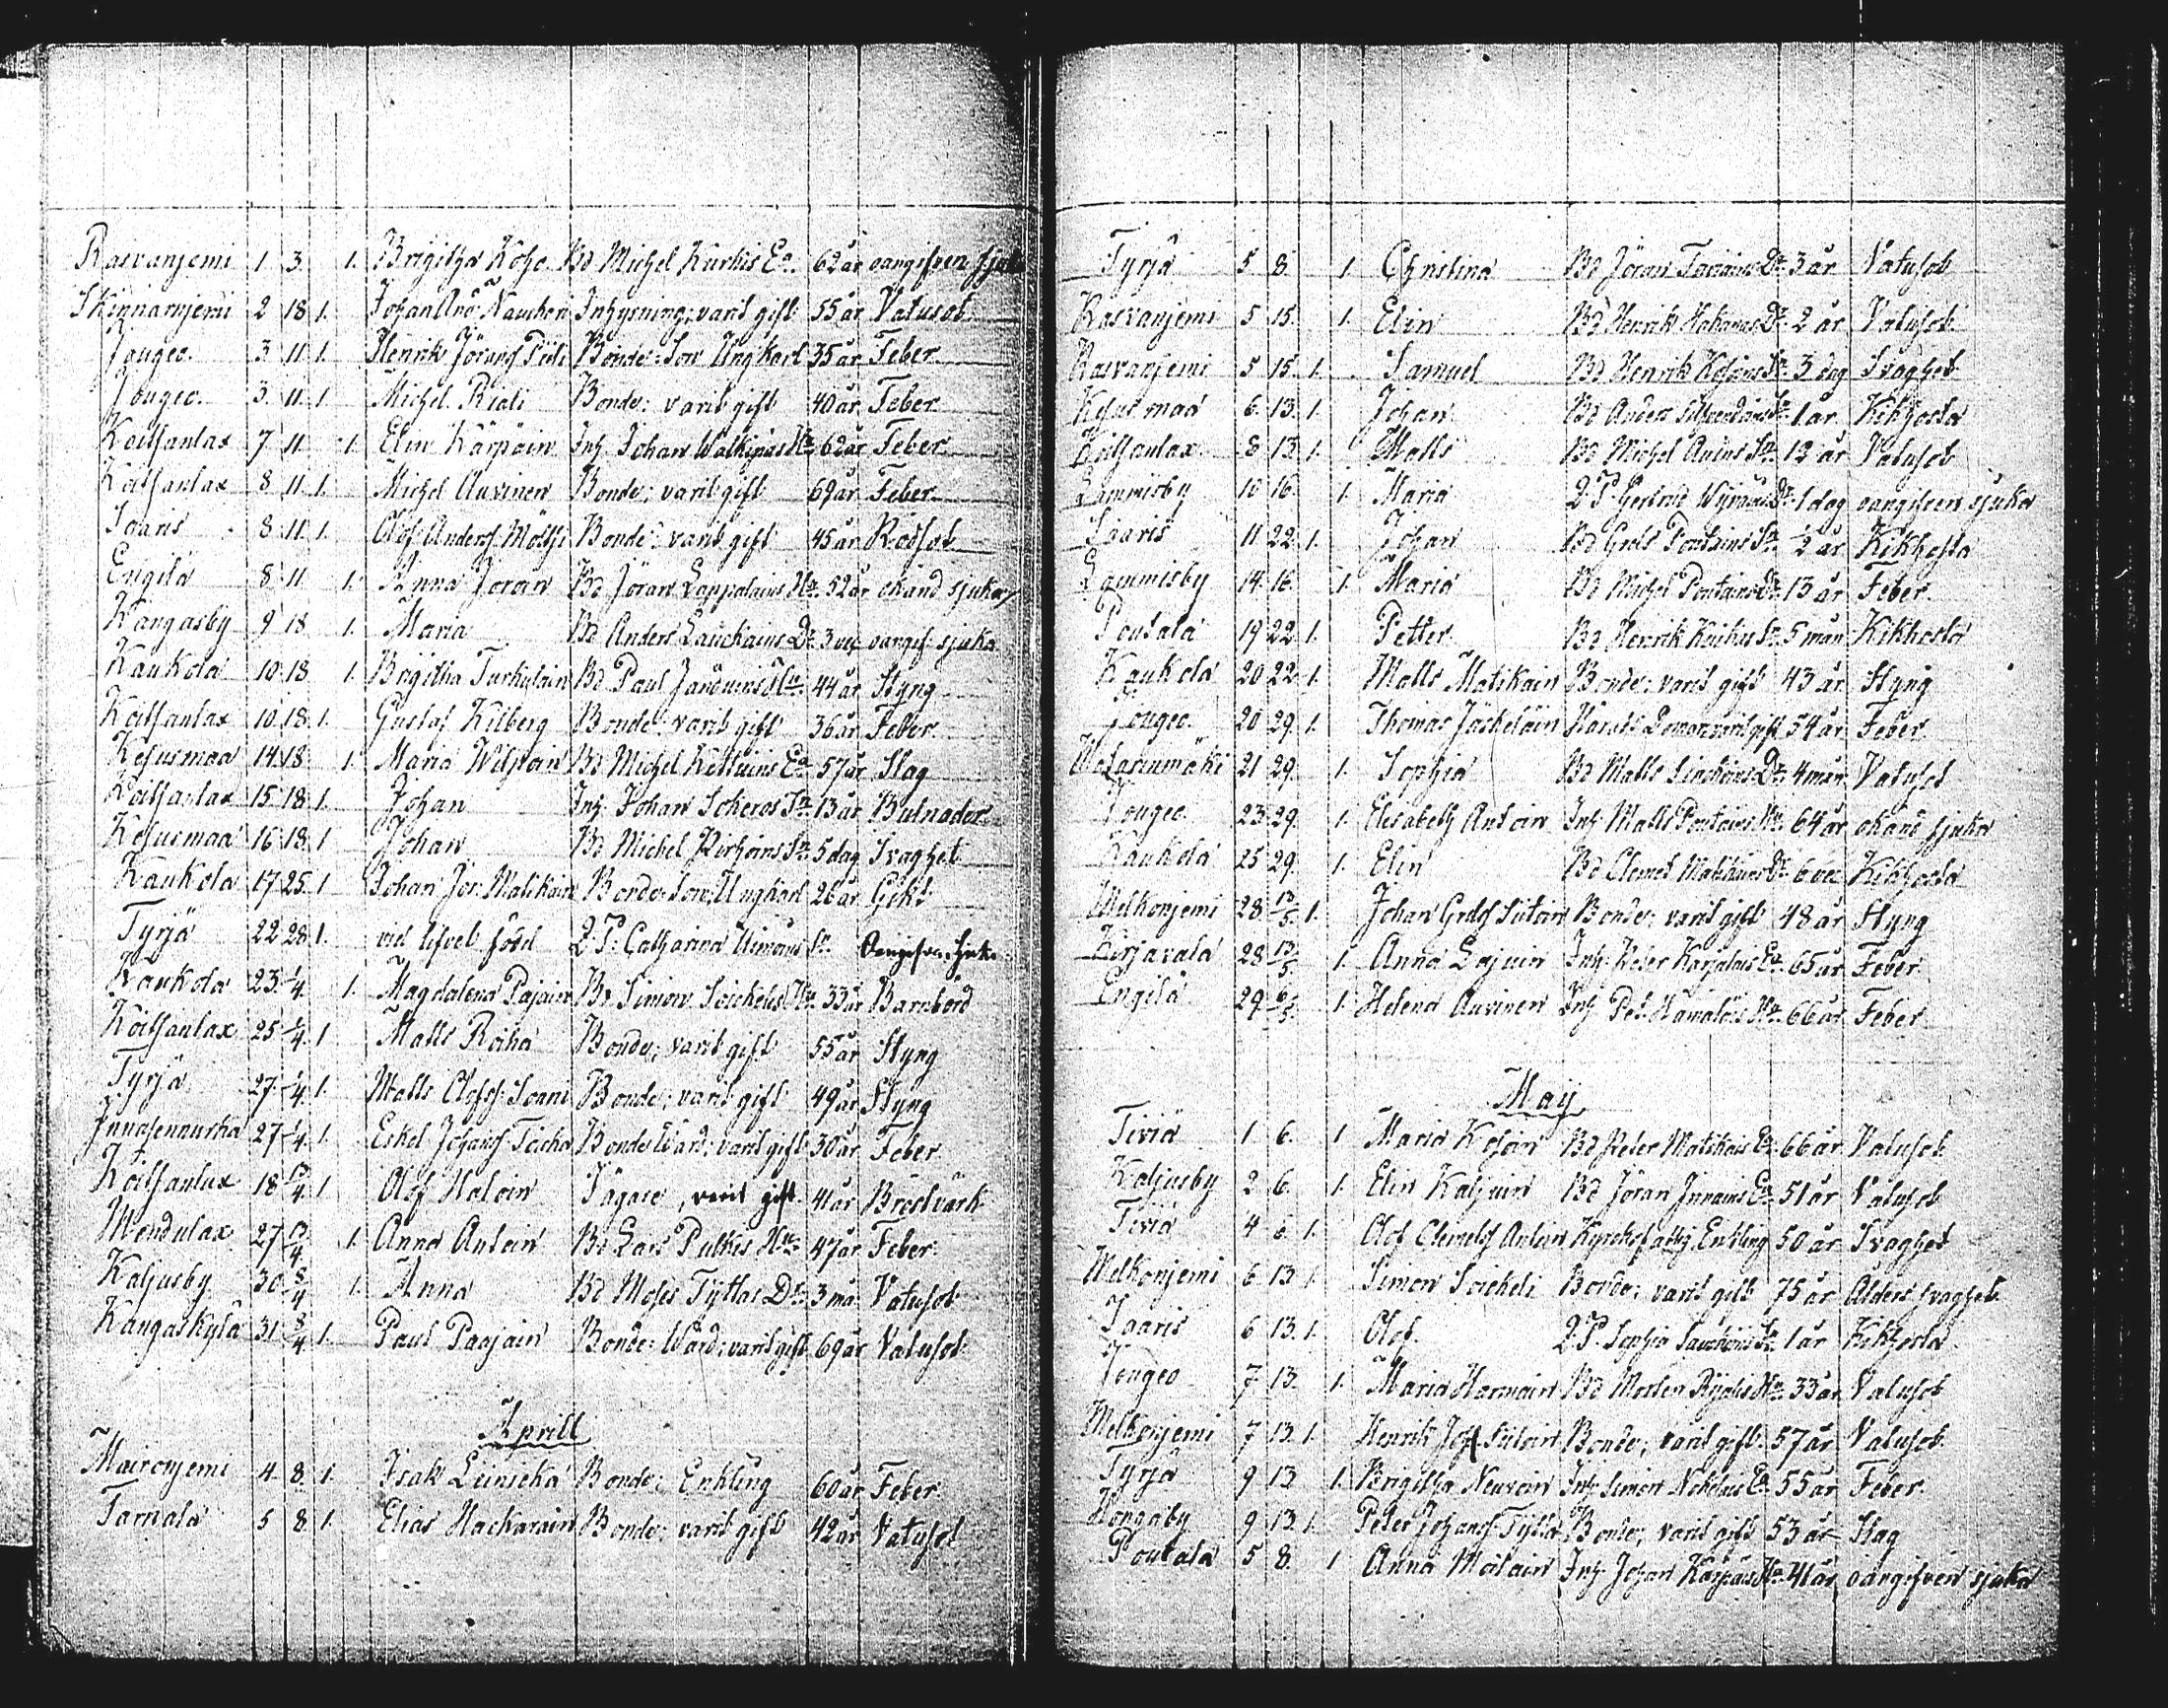 Rasvanjemi 1. 3. 1. Brigitha Kohe. Bd Michel Kurkis Ea. 62 år oangifven sjuk
Skinnarnjemi 2 18 1. Johan And Naucken Inhysning; varit gift 55 år Vatusot
Jougeo. 3. 11. 1. Henrik Jöransf Bonde: Son Ungkarl 35 år Feber
Jougeo. 3. 11. 1 Michel Riali Bonde: varit gift 40 år Feber
Koitsanlax 7 11. 1. Elin Kärpäin Inh. Johan Hu 62 år Feber
Koitsanlax 8 11. 1. Michel Auvinen Bonde; varit gift 69 år Feber
Saaris 8. 11. 1. Olof Andersf Mötssi Bonde: varit gift 45 år Rödsot
Engilä 8 11 1. Anna Joroin Bd Jöran Lappalains Hu. 52 år okänd sjuka
Kangasby 9 18 1. Maria Bd Anders Lauckains Dr. 3 vec oangif sjuka
Kaukola 10. 18 1. Brigitha Turkulain Bd Paul Hu. 44 år Styng
Koitsanlax 10. 18. 1. Gustaf Kilberg Bonde: varit gift 36 år Feber
Kesusmaa 14 18 1. Maria Bd Michel Ea 57 år Slag
Koitsanlax 15 18 1. Johan Inh. Johan Scheros Sn. 13 år Bulnader
Kesusmaa 16 18. 1 Johan Bd Michel Sn. 5 dag Svaghet
Kaukola 17 25. 1 Johan Jör. Matikain Bonde Son, Ungkarl 26 år Gikt
Tyrjä 22 28 1. vid lifvet född Q.P. Catharina Sn. Oangifven sjuka
Kaukola 23. 1/4. 1. Magdalena Pajain Bd Simon Hu. 33 år Barnbörd
Koitsanlax 25 1/4. 1 Matts Roiha Bonde; varit gift 55 år Styng
Tyrjä 27. 1/4. 1. Matts Olofsf. Soani Bonde; varit gift 49 år Styng
27 1/4. 1. Eskel Johansf Bonde Wärd; varit gift 30 år Feber
Koitsanlax 18 1. Olof Haloin Jägare, varit gift. 41 år Bröstvärk
Mendulax 27 1. Anna Antoin Bd Lars Pulkis Hu. 47 år Feber
Kaljusby 30. 8/4 1. Anna Bd Moses Tyttas Dr. 3 må. Vatusot
Kangaskylä 31 8/4 1. Paul Paajain Bonde: Wärd; varit gift 69 år Vatusot
Aprill
Mäironjemi 4. 8. 1. Isak Leinickä Bonde; Enkling 60 år Feber
Tarnala 5 8 1. Elias Hackarain Bonde: varit gift 42 år Vatusot
Tyrjä 5 8. 1. Christina Bd Jöran Dr. 3 år Vatusot
Rasvanjemi 5 15. 1. Elin Bd Henrik Dr. 2 år Vatusot
Rasvanjemi 5 15. 1. Samuel Bd Henrik Sn. 3 dag Svaghet
Kesusmaa 6. 13. 1. Johan Bd Anders Sn. 1 år Kikhosta
Koitsanlax 8 13. 1. Matts Bd Michel Sn. 12 år Vatusot
Lammisby 10 16. 1. Maria Q.P. Gertrud Dr. 1 dag oangifven sjuka
Saaris 11 22. 1. Johan Bd Grels Pontains Sn. 1/2 år Kikhosta
Lammisby 14. 16. 1. Maria Bd Michel Pontains Dr. 13 år Feber
Poutala 19 22 1. Petter Bd Henrik Sn. 5 mån Kikhosta
Kaukola 20 22. 1. Matts Matikain Bonde: varit gift 43 år Styng
Jougeo. 20 29. 1. Thomas Jäskeläin varit gift 54 år Feber
21 29. 1. Sophia Bd Matts Dr. 4 mån Vatusot
Jougeo. 23 29. 1. Elisabeth Antoin Inh. Matts Pontains Hu. 64 år okänd sjuka
Kaukola 25 29. 1. Elin Bd Clemet Matikains Dr. 6 vec Kikhosta
Melkonjemi 28 13/5. 1. Johan Grelsf Siitoin Bonde; varit gift 48 år Styng
Kirjavala 28 13/5. 1. Anna Inh. Peter Karjalais Ea. 65 år Feber
Engilä 29 6/5. 1. Helena Auvinen Inh. Pet. Hu. 66 år Feber
Maij
Tiviä 1. 6. 1 Maria Kosoin Bd Peter Matikais Ea. 66 år Vatusot
Kaljusby 2 6. 1. Elin Kaljuin Bd Jöran Ea 51 år Vatusot
Tiviä 4 6. 1. Olof Clemetsf Antoin Enkling 50 år Svaghet
Melkonjemi 6. 13. 1. Simon Soickeli Bonde; varit gift 75 år Ålders svaghet
Saaris 6 13. 1. Olof. Q.P. Sophia Sn. 1 år Kikhosta
Jougeo 7 13. 1. Maria Harmoin Bd Morten Hu. 33 år Vatusot
Melkonjemi 7 13. 1. Henrik Johsf Siitoin Bonde; varit gift 57 år Vatusot
Tyrjä 9 13 1. Brigitha Neuvoin Inh. Simon Ea. 55 år Feber
9 13. 1. Peter Johansf Tyttä Bonde; varit gift 53 år Slag
Poutala 5 8. 1 Anna Moilain Inh. Johan Hu. 41 år oangifven sjuka